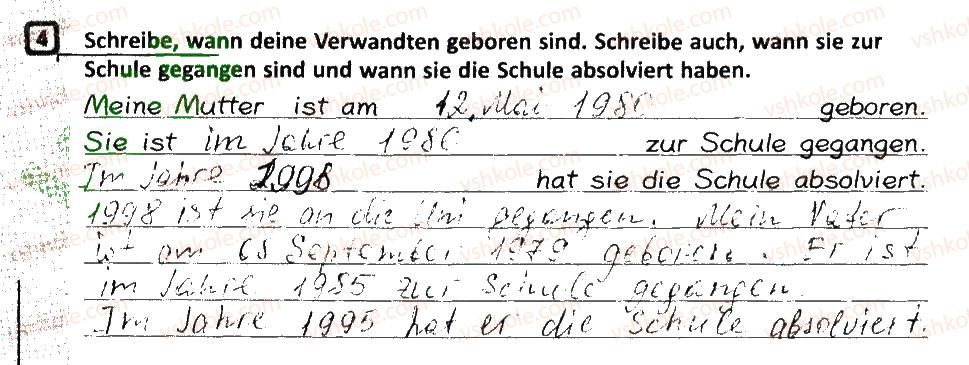 4 Schreibe, wann deine Verwandten geboren sind. Schreibe auch, wann sie zur
Schule gegangen sind und wann sie die Schule absolviert haben.
Meine Mutter ist am 12. Mai 1980 geboren.
Sie ist im Jahre 1986 zur Schule gegangen.
Im Jahre 1998 hat sie die Schule absolviert.
1998 ist sie an die Uni gegangen. Mein Vater
ist am September 1979 geboren. Er ist
im Jahre 1985 zur Schule gegangen
Im Jahre 1995 hat er die Schule absolviert.